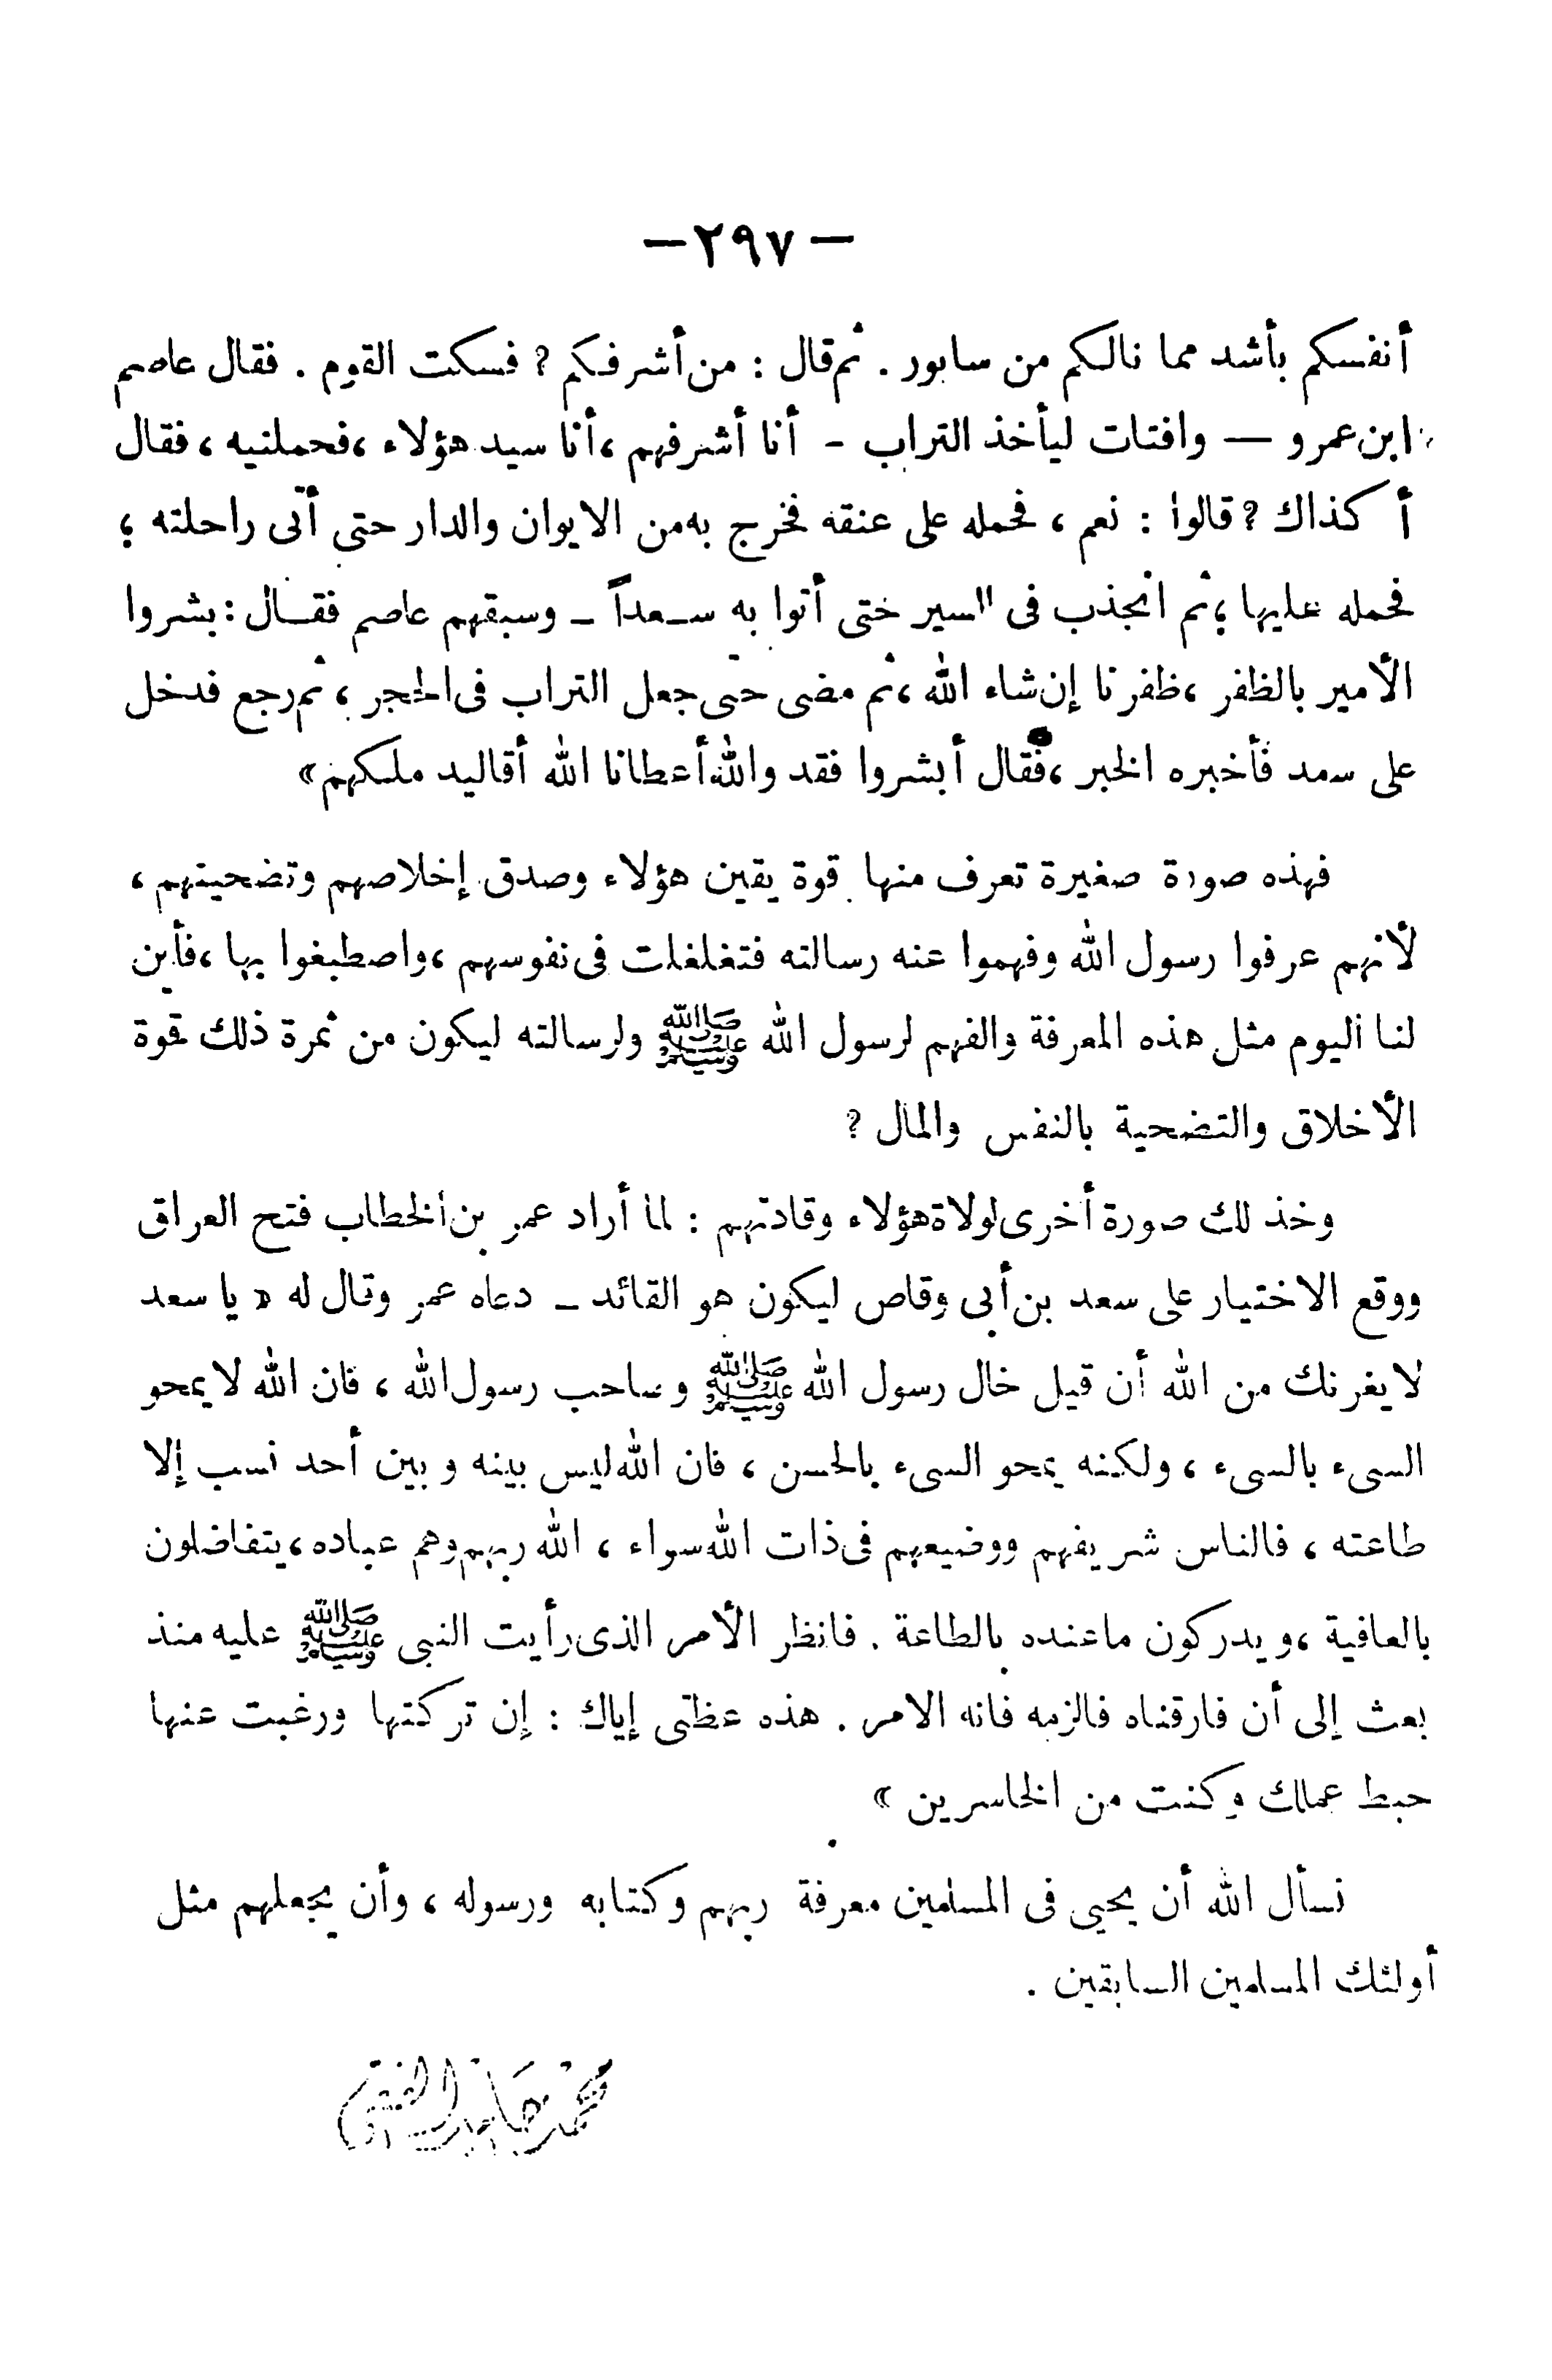 — ٢٩٧ —
أنفسكم بأشد مما نالكم من سابور . ثم قال : من أشرفكم ? فسكت القوم . فقال عاصم
ابن عمرو — وافتات ليأخذ التراب - أنا أشرفهم ، أنا سيد هؤلاء ، فحملنيه ، فقال
أ كذاك ? قالوا : نعم ، فحمله على عنقه فخرج به من الايوان والدار حتى أتى راحلته ؛
فحمله عليها ؛ ثم انجذب فى السير حتى أتوا به سعداً - وسبقهم عاصم فقال : بشروا
الأمير بالظفر ، ظفرنا إن شاء الله ، ثم مضى حتى جعل التراب فى الحجر ، ثم رجع فدخل
على سعد فأخبره الخبر ، فقال أبشروا فقد والله أعطانا الله أقاليد ملكهم »
فهذه صورة صغيرة تعرف منها قوة يقين هؤلاء وصدق إخلاصهم وتضحيتهم ،
لأنهم عرفوا رسول الله وفهموا عنه رسالته فتغلغلت فى نفوسهم ، واصطبغوا بها ، فأين
لنا اليوم مثل هذه المعرفة والفهم لرسول الله ﷺ ولرسالته ليكون من ثمرة ذلك قوة
الأخلاق والتضحية بالنفس والمال ?
وخذ لك صورة أخرى لولاة هؤلاء وقادتهم : لما أراد عمر بن الخطاب فتح العراق
ووقع الاختيار على سعد بن أبى وقاص ليكون هو القائد - دعاه عمر وقال له « يا سعد
لا يغرنك من الله أن قيل خال رسول الله ﷺ وصاحب رسول الله ، فان الله لا يمحو
السىء بالسىء ، ولكنه يمحو السىء بالحسن ، فان الله ليس بينه وبين أحد نسب إلا
طاعته ، فالناس شريفهم ووضيعهم فى ذات الله سواء ، الله ربهم وهم عباده ، يتفاضلون
بالعافية ، ويدركون ما عنده بالطاعة . فانظر الأمر الذى رأيت النبى ﷺ عليه منذ
بعث إلى أن فارقناه فالزمه فانه الامر . هذه عظتى إياك : إن تركتها ورغبت عنها
حبط عملك وكنت من الخاسرين »
نسأل الله أن يحيى فى المسلمين معرفة ربهم وكتابه ورسوله ، وأن يجعلهم مثل
أولئك المسلمين السابقين .
محمد حامد الفقي